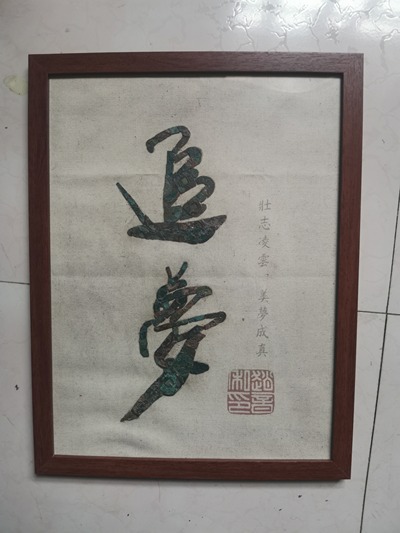 追夢
壯志凌雲·美夢成真